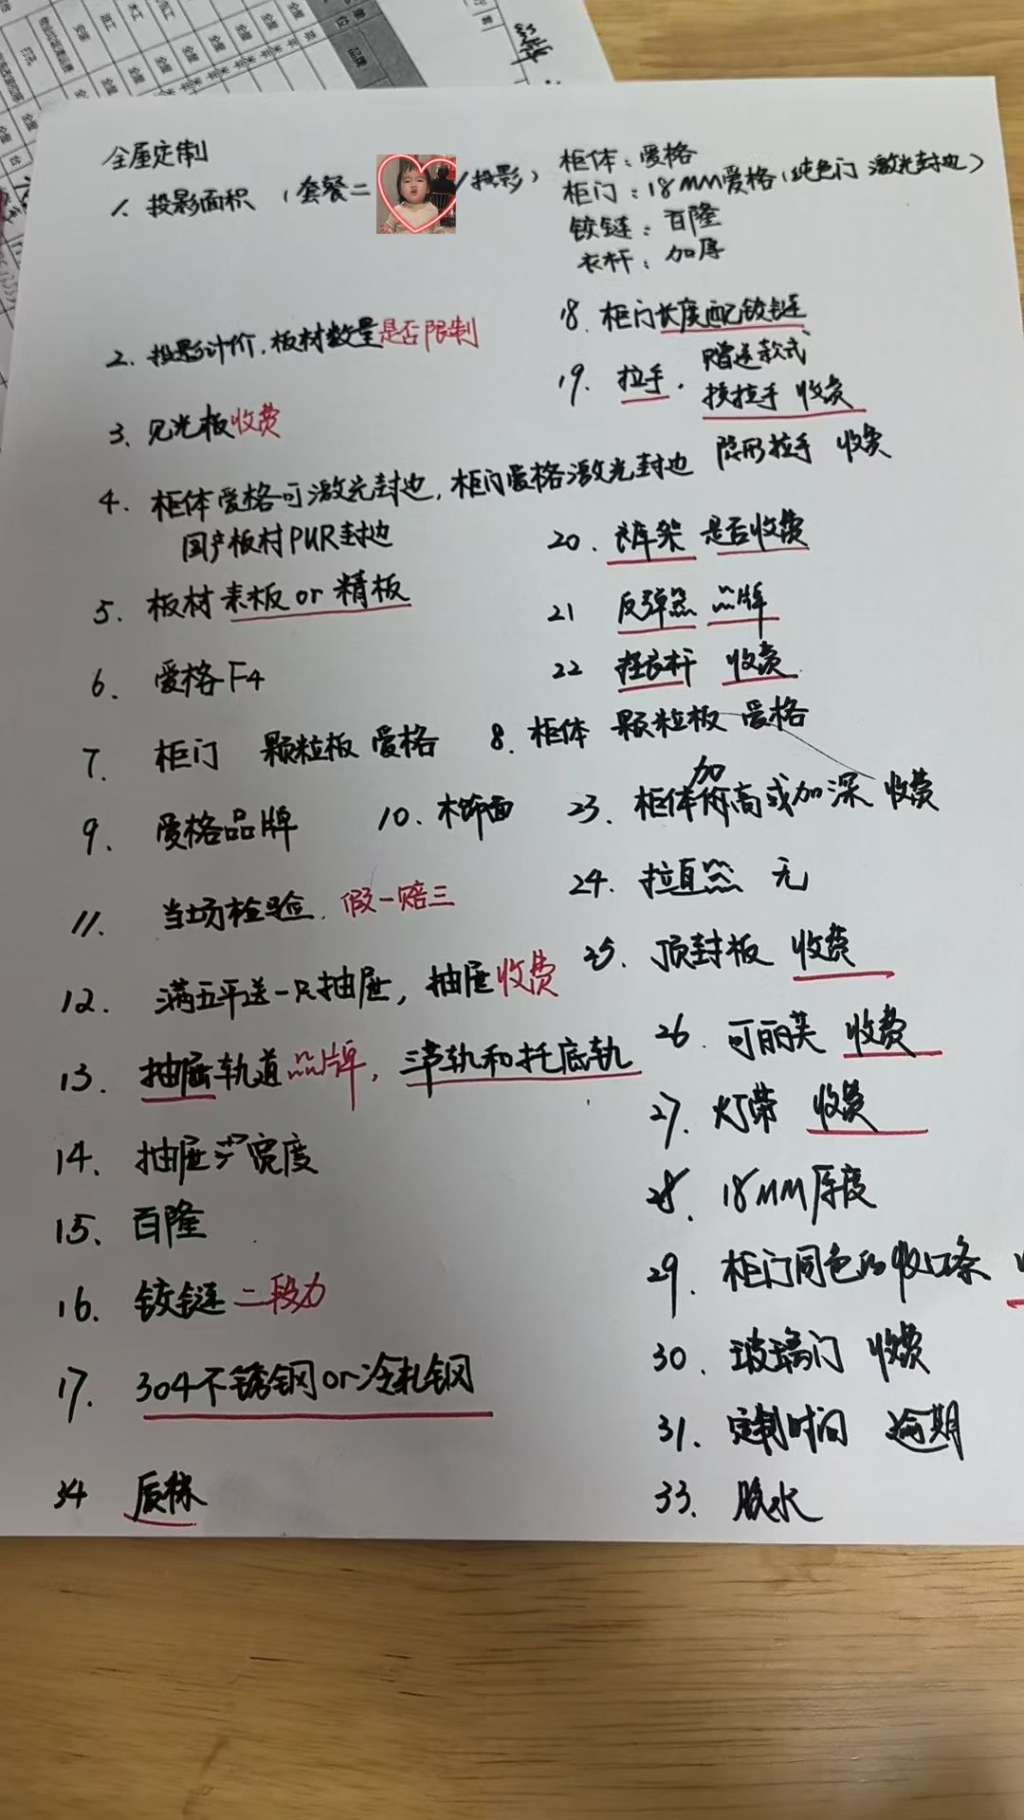 全屋定制
1. 投影面积 (套餐二 /投影)
柜体: 爱格
柜门: 18MM爱格(纯色门 激光封边)
铰链: 百隆
衣杆: 加厚
2. 投影计价, 板材数量是否限制
3. 见光板收费
4. 柜体爱格可激光封边, 柜门爱格激光封边
国产板材PUR封边
5. 板材素板or精板
6. 爱格F4
7. 柜门 颗粒板 爱格
8. 柜体 颗粒板 爱格
9. 爱格品牌
10. 木饰面
11. 当场检验, 假一赔三
12. 满五平送一只抽屉, 抽屉收费
13. 抽屉轨道品牌, 三节轨和托底轨
14. 抽屉 宽度
15. 百隆
16. 铰链 二段力
17. 304不锈钢or冷轧钢
34 质保
18. 柜门长度配铰链
19. 拉手. 赠送款式
换拉手 收费
隐形拉手 收费
20. 裤架 是否收费
21 反弹器 品牌
22 挂衣杆 收费
23. 柜体加高或加深 收费
24. 拉直器 无
25. 顶封板 收费
26. 可丽芙 收费
27. 灯带 收费
28. 18MM厚度
29. 柜门同色的收口条
30. 玻璃门 收费
31. 定制时间 逾期
33. 脱水